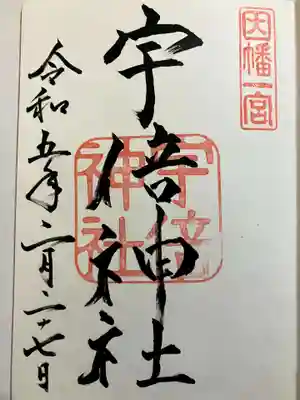 因幡一宮
宇倍神社
宇倍
神社
令和五年二月二十七日